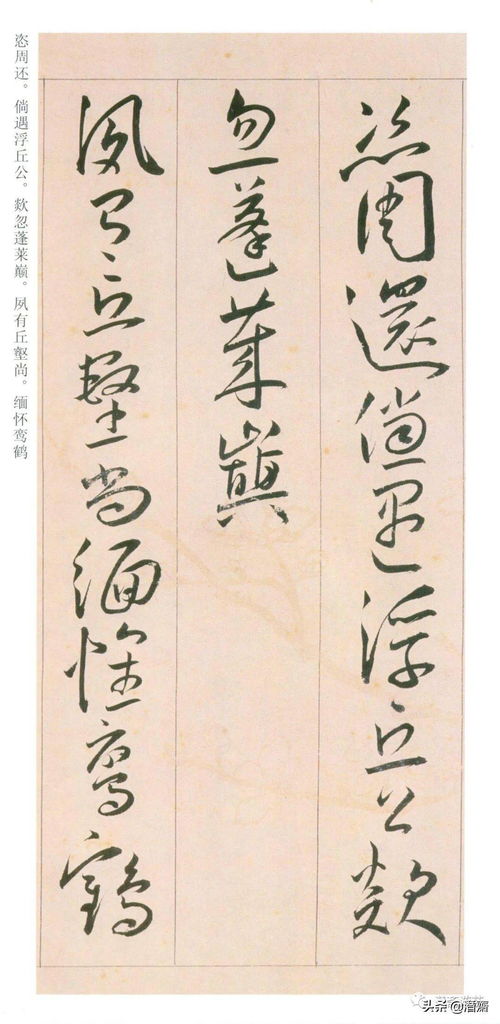 恣周還倘遇浮丘公欻
忽蓬萊巔
夙有丘壑尚緬懷鸞鶴
恣周还。倘遇浮丘公。欻忽蓬莱巅。夙有丘壑尚。缅怀鸾鹤
头条 @潛齋